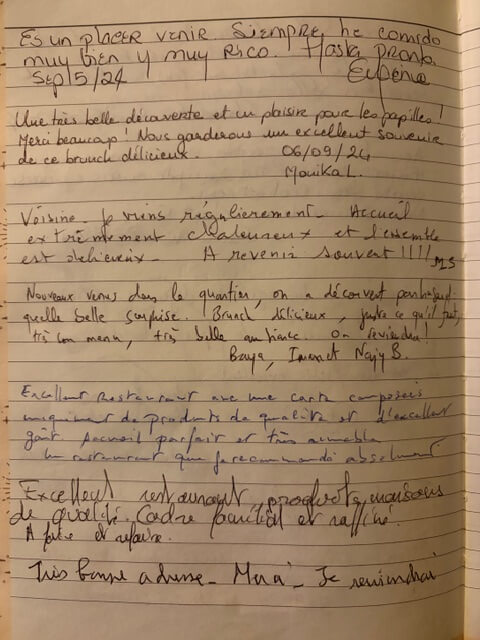 Es un placer venir. Siempre he comido
muy bien y muy rico. Hasta pronto.
Sep/5/24 Eugenia
Une très belle découverte et un plaisir pour les papilles !
Merci beaucoup ! Nous garderons un excellent souvenir
de ce brunch délicieux. 06/09/24
Monika L.
Voisine. Je viens régulièrement. Accueil
extrêmement chaleureux et l'ensemble
est délicieux. A revenir souvent !!!! MS
Nouveaux venus dans le quartier, on a découvert
quelle belle surprise. Brunch délicieux, juste ce qu'il faut,
très bon menu, très belle ambiance. On reviendra !
Baya, Imen et Najy B.
Excellent Restaurant avec une carte composée
uniquement de produits de qualité et d'excellent
goût accueil parfait et très aimable
Un restaurant que je recommande absolument
Excellent restaurant, produits maisons
de qualité. Cadre familial et raffiné.
A faire et refaire.
Très bonne adresse - Merci - Je reviendrai